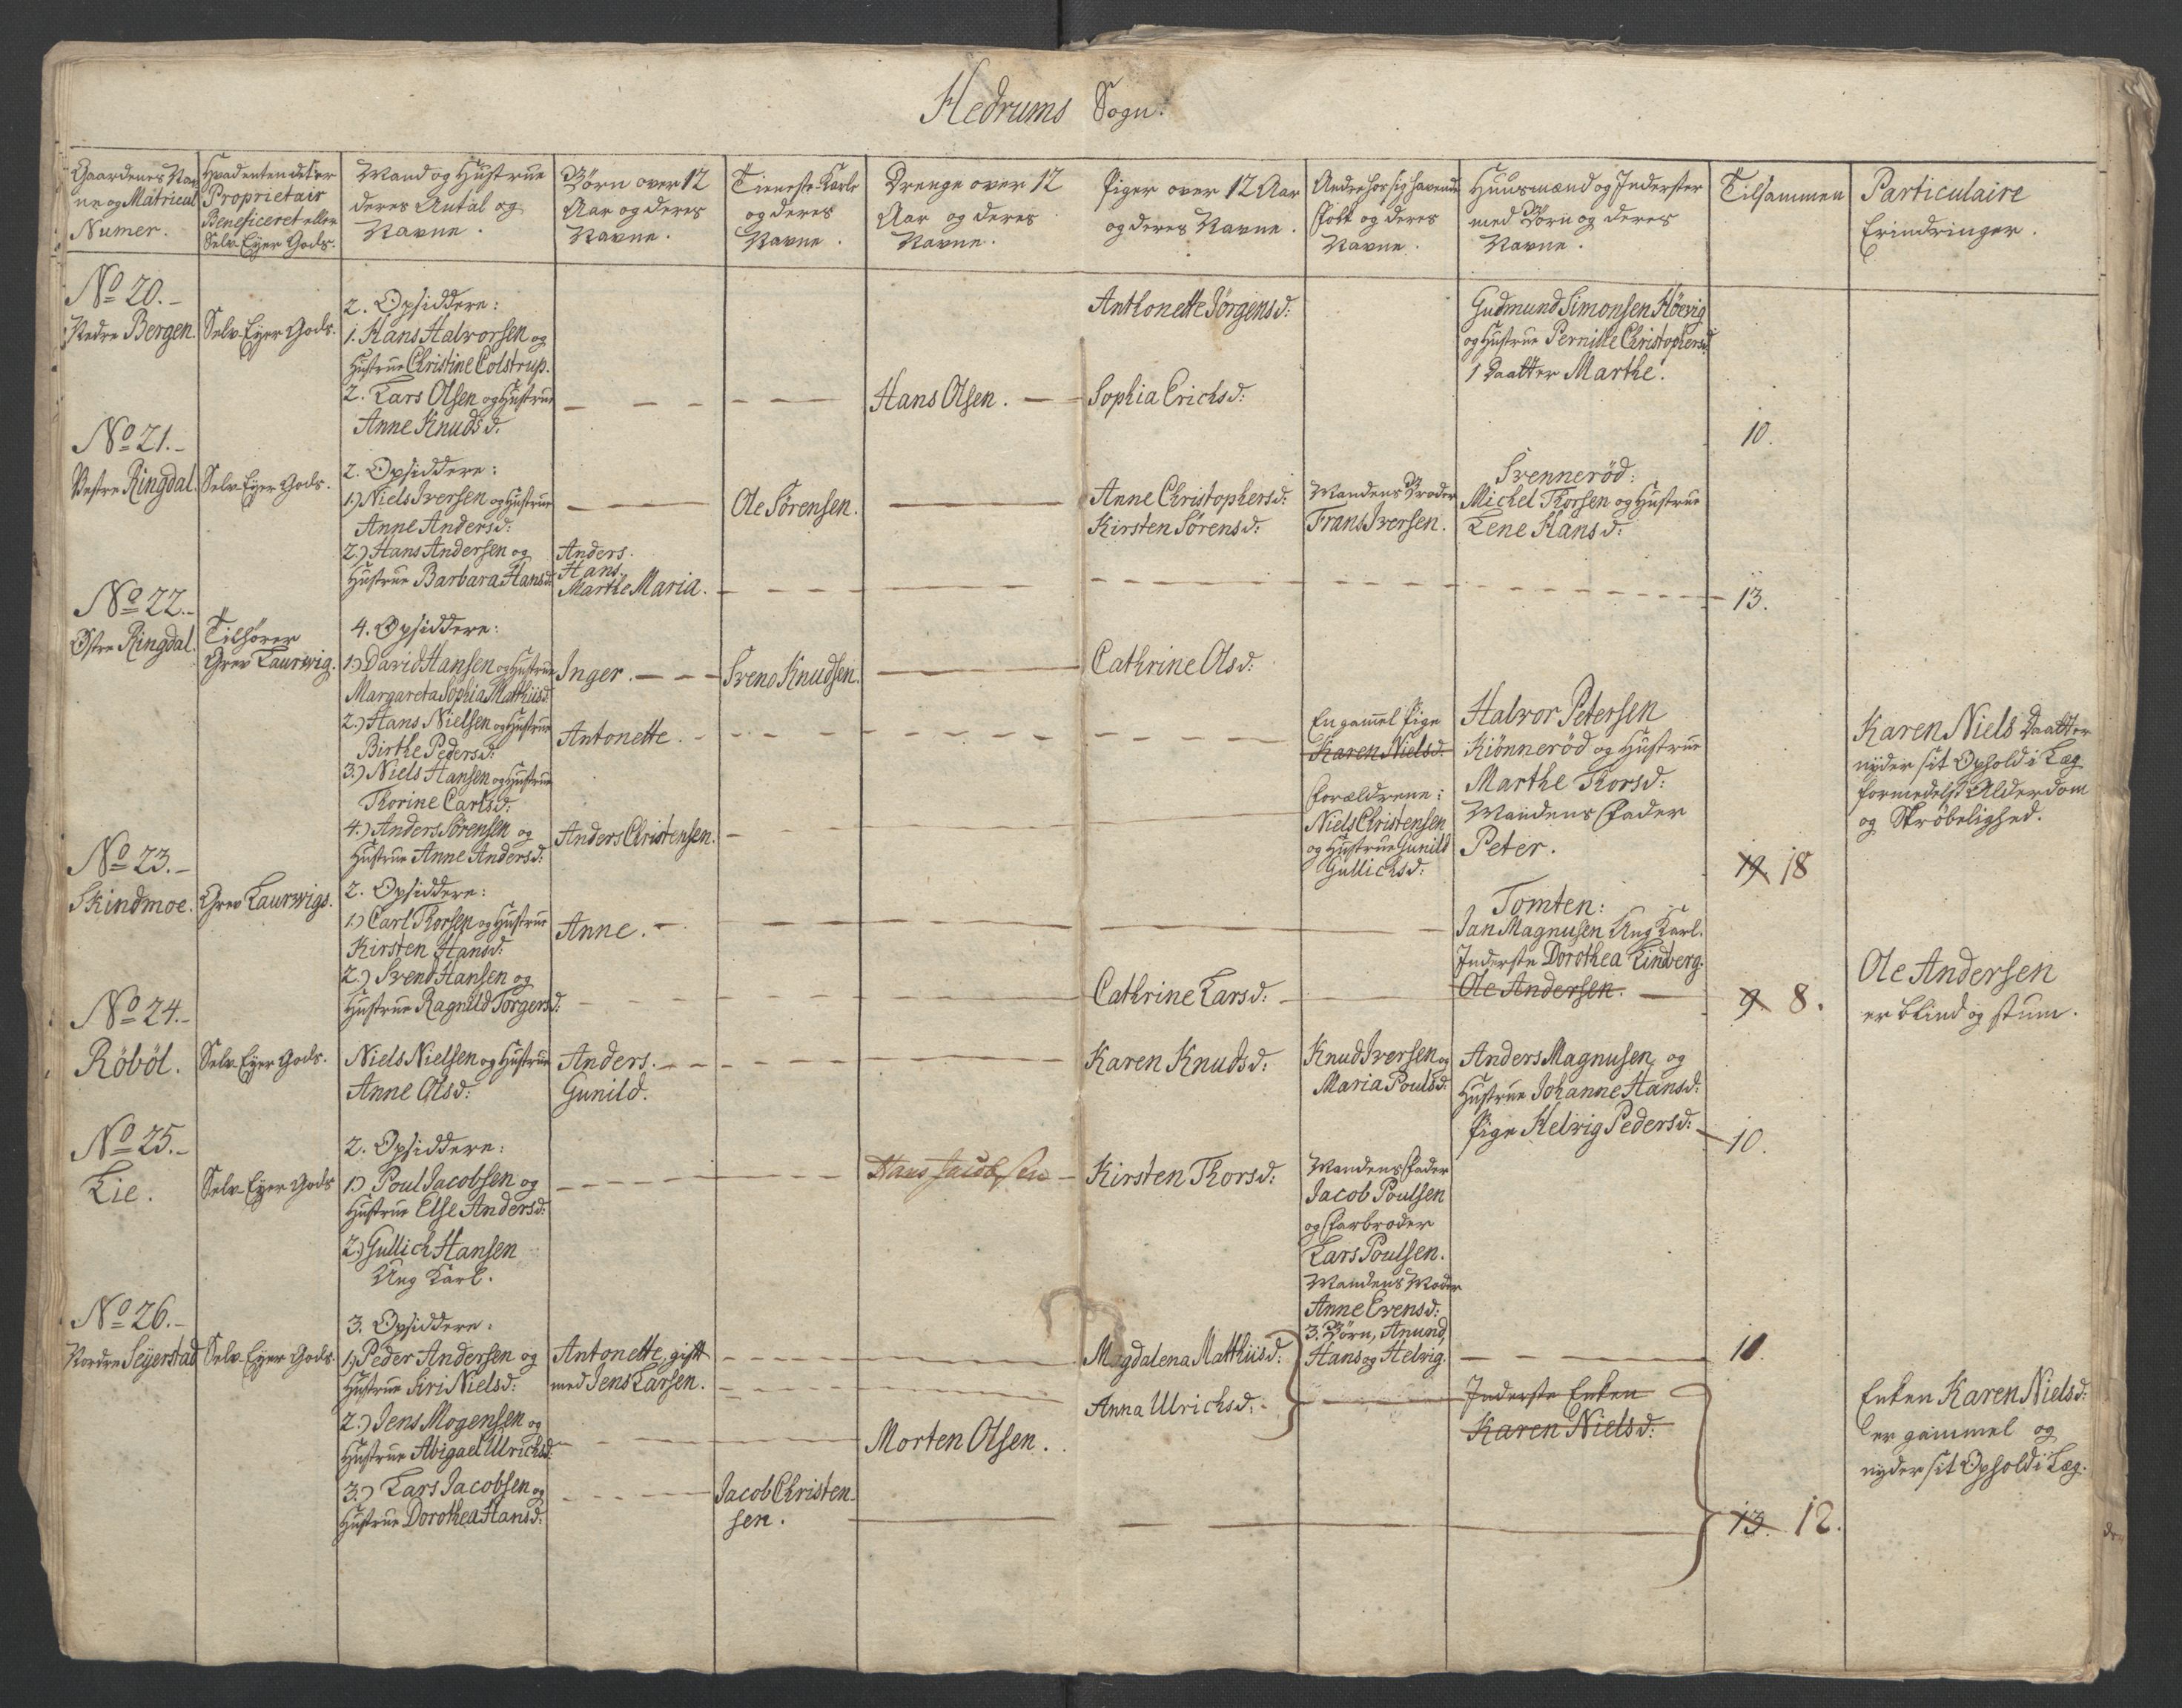 Hedrums Sogn.
Gaardenes Nav-
ne og Matricul
Numer.
Hvad enten det er
Proprietair
Beneficeret eller
Selv-Eyer Gods.
Mand og Hustrue
deres Antal og
Navne.
Börn over 12
Aar og deres
Navne.
Tieneste-Karle
og deres
Navne.
Drenge over 12
Aar og deres
Navne.
Piger over 12 Aar
og deres Navne.
Andre hos sig havende
Folk og deres
Navne.
Huusmænd og Inderster
med Börn og deres
Navne.
Tilsammen
Particulaire
Erindringer.
No 20.-
Nedre Bergen.
Selv-Eyer Gods.
2. Opsiddere:
1. Hans Halvorsen og
Hustrue Christine Colstrup.
2. Lars Olsen og Hustrue
Anne Knudsd.
Hans Olsen.
Anthonette Jörgensd:
Sophia Erichsd:
Gudmund Simonsen Höevig
og Hustrue Pernille Christophersd.
1 Daatter Marthe.
10.
No 21.-
Vestre Ringdal.
Selv-Eyer Gods.
2. Opsiddere:
1.) Niels Iversen og Hustrue
Anne Andersd:
2.) Hans Andersen og
Hustrue Barbara Hansd:
Anders.
Hans.
Marthe Maria.
Ole Sörensen.
Anne Christophersd:
Kirsten Sörensd:
Mandens Broder
Frans Iversen.
Svenneröd:
Michel Thorsen og Hustrue
Lene Hansd:
13.
No 22.-
Østre Ringdal.
Tilhörer
Grev Laurwig.
4. Opsiddere:
1.) David Hansen og Hustrue
Margareta Sophia Mathiisd.
2.) Hans Nielsen og Hustrue
Birthe Pedersd:
3.) Niels Hansen og Hustrue
Thorine Carlsd:
4.) Anders Sörensen og
Hustrue Anne Andersd:
Inger.
Antonette.
Anders Christensen.
Svend Knudsen.
Cathrine Olsd:
En gammel Pige
Karen Nielsd:
Forældrene:
Niels Christensen
og Hustrue Gunild
Gullichsd:
Halvor Petersen
Kiönneröd og Hustrue
Marthe Thorsd:
Mandens Fader
Peter.
19. 18
Karen Niels Daatter
nyder sit Ophold i Læg
formedelst Alderdom
og Skröbelighed.
No 23.-
Skindmoe.
Grev Laurwigs.
2. Opsiddere:
1.) Carl Thorsen og Hustrue
Kirsten Hansd:
2.) Svend Hansen og
Hustrue Ragnild Torgersd:
Anne.
Cathrine Larsd:
Tomten:
Jan Magnusen Ung Karl.
Inderste Dorothea Lindberg.
Ole Andersen.
9 8.
Ole Andersen
er blind og stum.
No 24.-
Röböl.
Selv-Eyer Gods.
Niels Nielsen og Hustrue
Anne Olsd:
Anders.
Gunild.
Karen Knudsd:
Knud Iversen og
Maria Poulsd:
Anders Magnusen og
Hustrue Johanne Hansd:
Pige Helvig Pedersd:
10.
No 25.-
Lie.
Selv-Eyer Gods
2. Opsiddere:
1.) Poul Jacobsen og
Hustrue Else Andersd:
2.) Gullich Hansen
Ung Karl.
Hans Jacobsen
Kirsten Thorsd:
Mandens Fader
Jacob Poulsen
og Farbroder
Lars Poulsen.
Mandens Moder
Anne Evensd:
3. Börn, Anund,
Hans og Helvig.
10.
No 26.-
Nordre Seyerstad
Selv-Eyer Gods.
3. Opsiddere:
1.) Peder Andersen og
Hustrue Siri Nielsd:
2.) Jens Mogensen og
Hustrue Abigael Ulrichsd:
3.) Lars Jacobsen og
Hustrue Dorothea Hansd:
Antonette, gift
med Jens Larsen.
Jacob Christen-
sen.
Morten Olsen.
Magdalena Mathiisd:
Anna Ulrichsd:
Inderste Enken
Karen Nielsd:
13. 12.
Enken Karen Nielsd:
er gammel og
nyder sit Ophold i Læg.